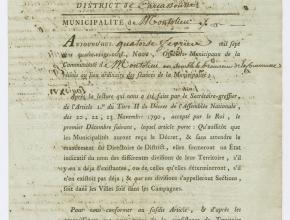 DISTRICT de Carcassonne
MUNICIPALITÉ de Montolieu
AUJOURD'HUI quatorze fevrier mil sept
cent quatre-vingt-onze, Nous, Officiers Municipaux de la
Communauté de Montolieu
réunis au lieu ordinaire des séances de la Municipalité;
Après la lecture qui nous a été faite par le Secrétaire-greffier
de l'Article 1er du Titre II du Décret de l'Assemblée Nationale,
des 20, 22, 23 Novembre 1790, accepté par le Roi, le
premier Décembre suivant, lequel article porte: Qu'aussitôt que
les Municipalités auront reçu le Décret, & sans attendre le
mandement du Directoire de District, elles formeront un État
indicatif du nom des différentes divisions de leur Territoire, s'il
y en a déja d'existantes, ou de celles qu'elles détermineront, s'il
n'en existoit pas déja; & que ces divisions s'appelleront Sections,
soit dans les Villes soit dans les Campagnes.
Pour nous conformer au susdit Article, & d'après les